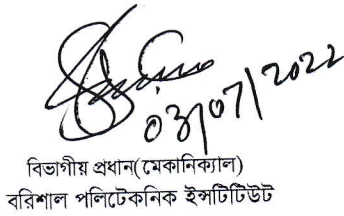 03/07/2022
বিভাগীয় প্রধান(মেকানিক্যাল)
বরিশাল পলিটেকনিক ইন্সটিটিউট